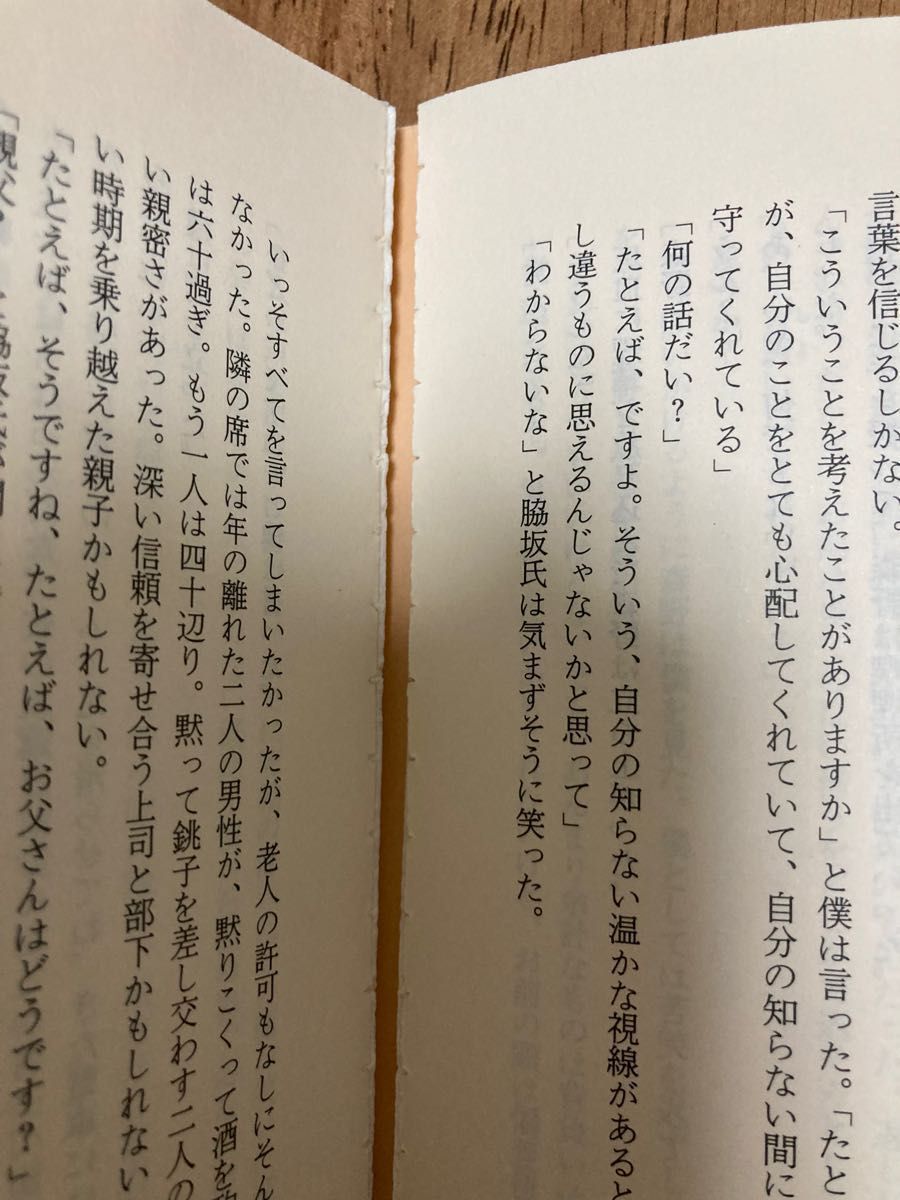 言葉を信じるしかない。
「こういうことを考えたことがありますか」と僕は言った。「たと
が、自分のことをとても心配してくれていて、自分の知らない間に
守ってくれている」
「何の話だい？」
「たとえば、ですよ。そういう、自分の知らない温かな視線があると
し違うものに思えるんじゃないかと思って」
「わからないな」と脇坂氏は気まずそうに笑った。
いっそすべてを言ってしまいたかったが、老人の許可もなしにそん
なかった。隣の席では年の離れた二人の男性が、黙りこくって酒を
は六十過ぎ。もう一人は四十辺り。黙って銚子を差し交わす二人の
い親密さがあった。深い信頼を寄せ合う上司と部下かもしれない
い時期を乗り越えた親子かもしれない。
「たとえば、そうですね、たとえば、お父さんはどうです？」
「親父？」